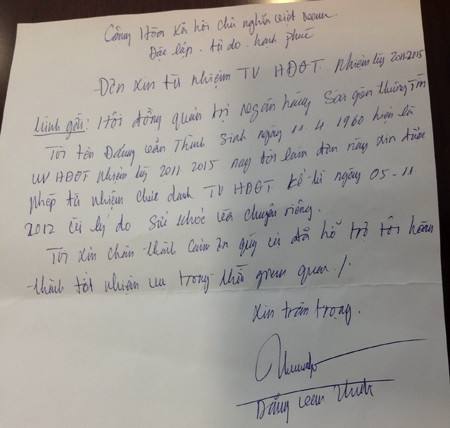 Cộng Hòa Xã hội chủ nghĩa Việt Nam
Độc lập - tự do - hạnh phúc
Đơn xin từ nhiệm TV HĐQT. Nhiệm kỳ 2011-2015
Kính gửi: Hội đồng quản trị ngân hàng Sài gòn thương Tín
Tôi tên Đặng văn Thành Sinh ngày 11.4 1960 hiện là
UV HĐQT nhiệm kỳ 2011 2015 nay tôi làm đơn này xin được
phép từ nhiệm chức danh TV HĐQT kể từ ngày 05-11
2012 vì lý do Sức khỏe và chuyện riêng.
Tôi xin chân thành cảm ơn quý vị đã hỗ trợ tôi hoàn
thành tốt nhiệm vụ trong thời gian qua./.
Xin trân trọng.
Đặng văn Thành